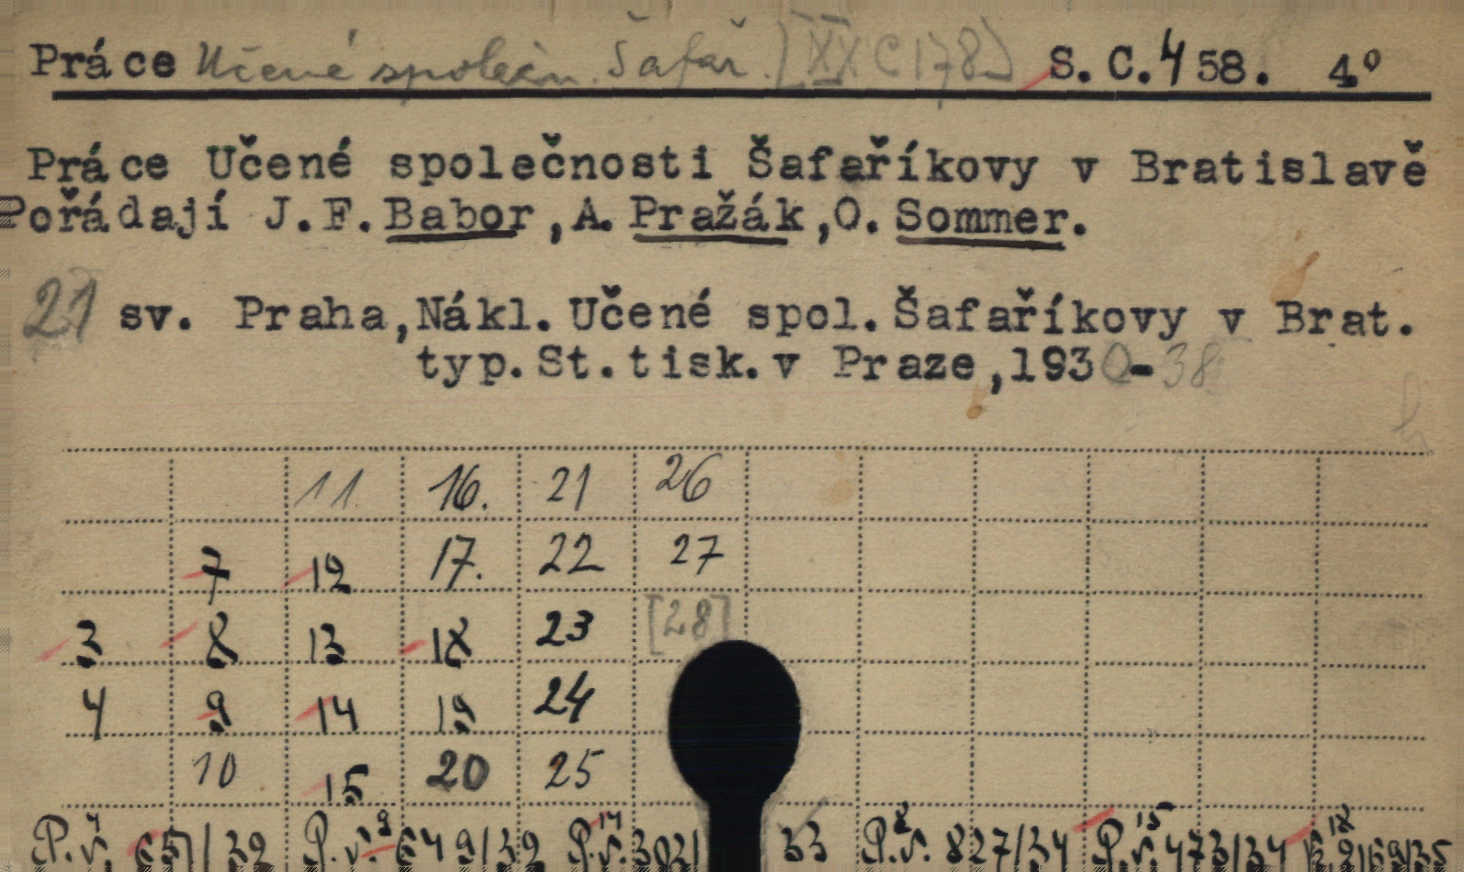 Práce Učené společn. Šafař. [XX C 178] S. C. 458. 4°
Práce Učené společnosti Šafaříkovy v Bratislavě
Pořádají J.F. Babor, A. Pražák, O. Sommer.
21 sv. Praha, Nákl. Učené spol. Šafaříkovy v Brat.
typ. St. tisk. v Praze, 1930-38
11 16. 21 26
7 12 17. 22 27
3 8 13 18 23 [28]
4 9 14 19 24
10 15 20 25
4 9 14 8 15 18
P.v. 651/32 P.v. 649/32 P.v. 33 P.v. 827/34 P.v. 473/34